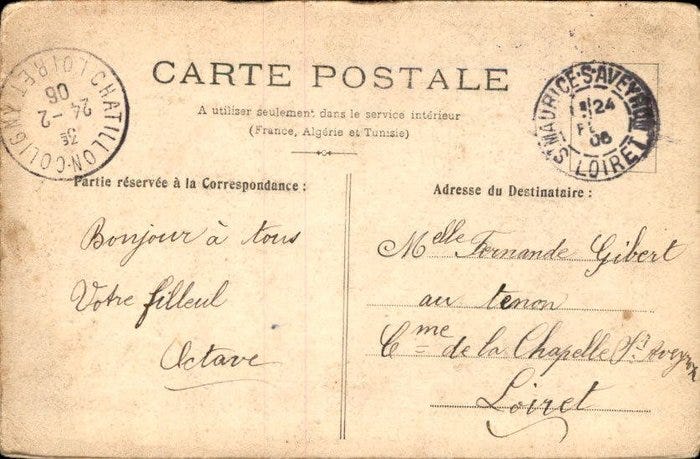 CARTE POSTALE
A utiliser seulement dans le service intérieur
(France, Algérie et Tunisie)
CHATILLON-COLIGNY
LOIRET
3E
24 - 2
06
ST MAURICE-S-AVEYRON
24
06
LOIRET
Partie réservée à la Correspondance :
Bonjour à tous
Votre filleul
Octave
Adresse du Destinataire :
Melle Fernande Gibert
au tenon
Cme de la Chapelle St. Aveyron
Loiret